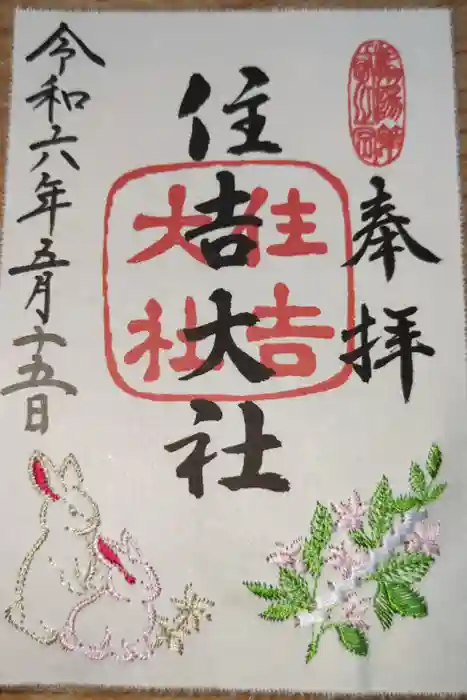 奉拝
住吉大社
住吉大社
令和六年五月十五日